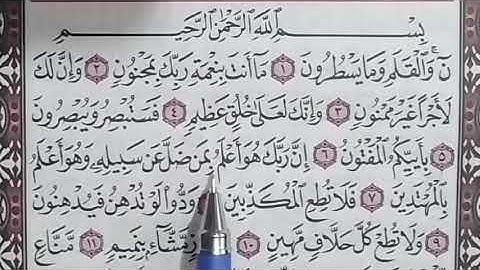 بِسْمِ ٱللَّهِ ٱلرَّحْمَٰنِ ٱلرَّحِيمِ
نٓ ۚ وَٱلْقَلَمِ وَمَا يَسْطُرُونَ ١ مَآ أَنتَ بِنِعْمَةِ رَبِّكَ بِمَجْنُونٍ ٢ وَإِنَّ لَكَ
لَأَجْرًا غَيْرَ مَمْنُونٍ ٣ وَإِنَّكَ لَعَلَىٰ خُلُقٍ عَظِيمٍ ٤ فَسَتُبْصِرُ وَيُبْصِرُونَ
٥ بِأَييِّكُمُ ٱلْمَفْتُونُ ٦ إِنَّ رَبَّكَ هُوَ أَعْلَمُ بِمَن ضَلَّ عَن سَبِيلِهِۦ وَهُوَ أَعْلَمُ
بِٱلْمُهْتَدِينَ ٧ فَلَا تُطِعِ ٱلْمُكَذِّبِينَ وَدُّوا۟ لَوْ تُدْهِنُ فَيُدْهِنُونَ
٩ وَلَا تُطِعْ كُلَّ حَلَّافٍ مَّهِينٍ ١٠ مَّشَّآءٍۭ بِنَمِيمٍ ١١ مَّنَّاعٍ